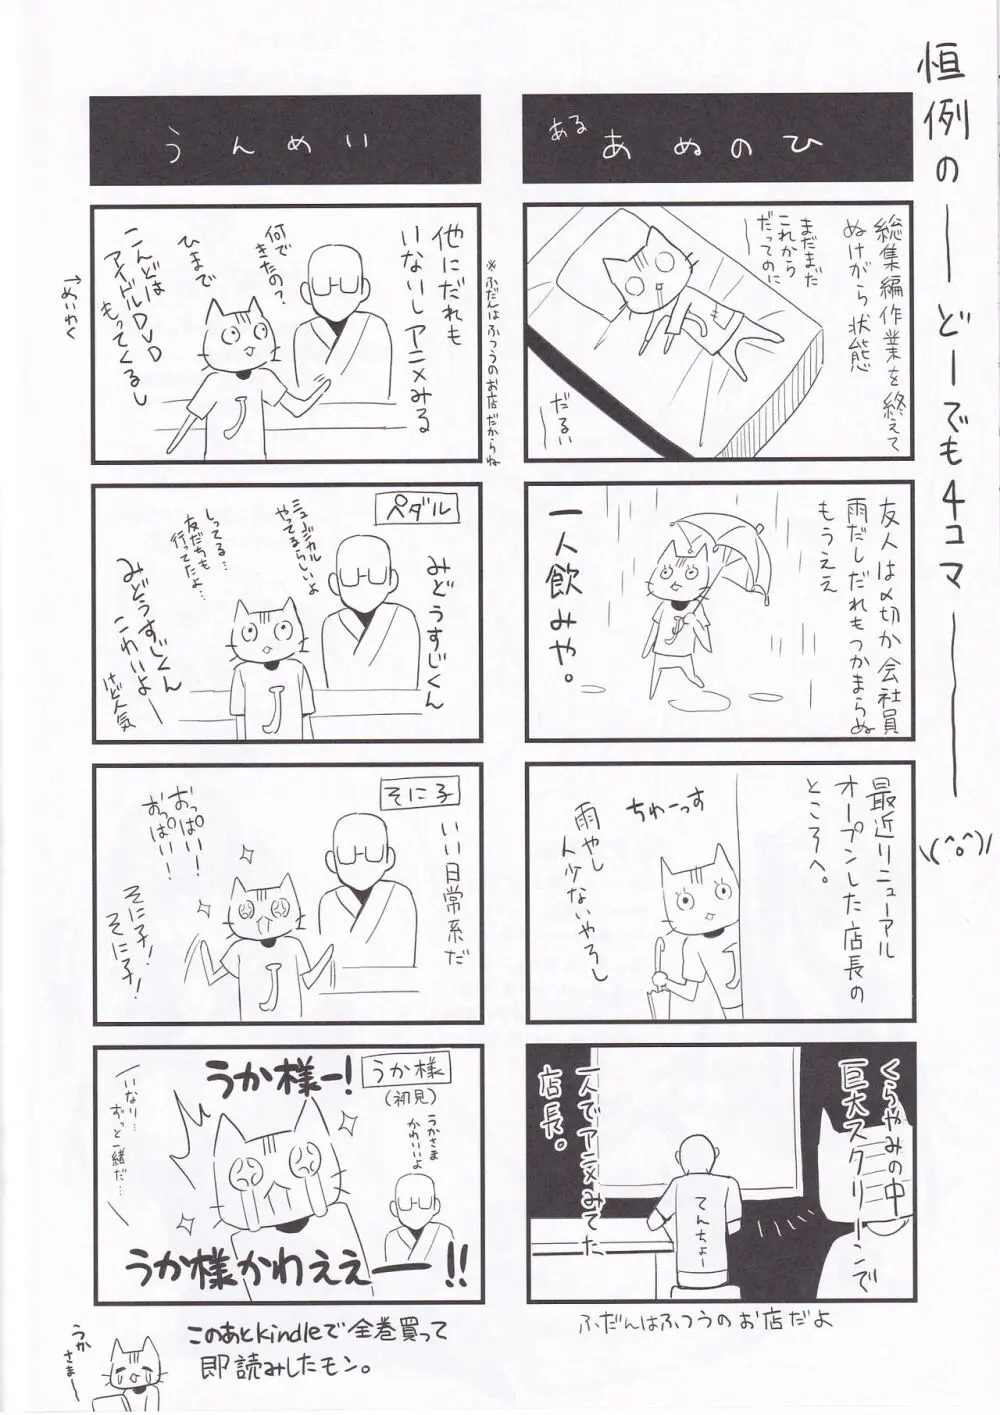 恒例の――どーでも4コマ――
\(^o^)/
ある
あめのひ
総集編作業を終えて
ぬけがら状態
まだまだ
これから
だってのに
だるい
友人は〆切か会社員
雨だしだれもつかまらぬ
もうええ
一人飲みや。
最近リニューアル
オープンした店長の
ところへ。
ちわーっす
雨やし
人少ないやろし
くらやみの中
巨大スクリーンで
一人でアニメみてた
店長。
てんちょー
ふだんはふつうのお店だよ
うんめい
他にだれも
いないしアニメみる
※ふだんはふつうのお店だからね
何で
きたの?
ひまで
こんどは
アイドルDVD
もってくるし
→めいわく
ペダル
みどうすじくん
ミュージカル
やってるらしいよ
しってる…
友だちも
行ってたよ…
みどうすじくん
こわいよー
けど人気
そに子
いい日常系だ
おっぱい!
おっぱい!
そに子!
そに子!
うか様
(初見)
うか様ー!
うかさま
かわいいよ
いなり…
ずっと一緒だ…
うか様かわええー!!
このあとkindleで全巻買って
即読みしたモン。
うか
さまー